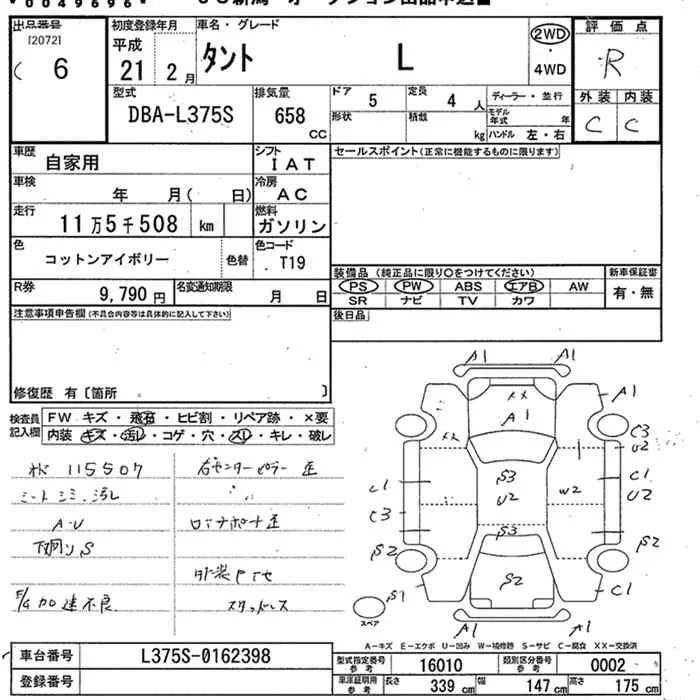 0049696
出品番号
[2072]
6
初度登録年月
平成
21 2月
車名・グレード
タント L
2WD
・
4WD
評価点
R
外装 内装
C C
型式
DBA-L375S
排気量
658
CC
ドア 5
形状
定員 4人
積載 kg
ディーラー・並行
モデル年式 年
ハンドル 左・右
車歴 自家用
車検 年 月( 日)
走行 11万5千508 km
色 コットンアイボリー 色替
シフト IAT
冷房 AC
燃料 ガソリン
色コード T19
セールスポイント(正常に機能するものに限ります)
R券 9,790円
名変通知期限 月 日
装備品 (純正品に限り○をつけてください)
PS PW ABS エアB AW
SR ナビ TV カワ
新車保証書
有・無
後日品
注意事項申告欄(不具合内容等は具体的に記入して下さい)
修復歴 有〔箇所 〕
検査員記入欄
FW キズ・飛石・ヒビ割・リペア跡・×要
内装 キズ・汚レ・コゲ・穴・スレ・キレ・破レ
115507
シート シミ 汚レ
A・U
下廻りS
F/G 加速不良
右センターピラー 歪
ロッカ
外装
スタッドレス
A1 A1
XX
A1
A1
XX
C3
U2
S3
U2
W2
C1
C3
C1
U2
S3
S2
S2
S2
S1
C1
A1 A1
スペア
A-キズ E-エクボ U-凹み W-補修跡 S-サビ C-腐食 XX-交換済
車台番号 L375S-0162398
登録番号
型式指定番号参考 16010
類別区分番号参考 0002
車庫証明用参考 長さ 339cm 幅 147cm 高さ 175cm